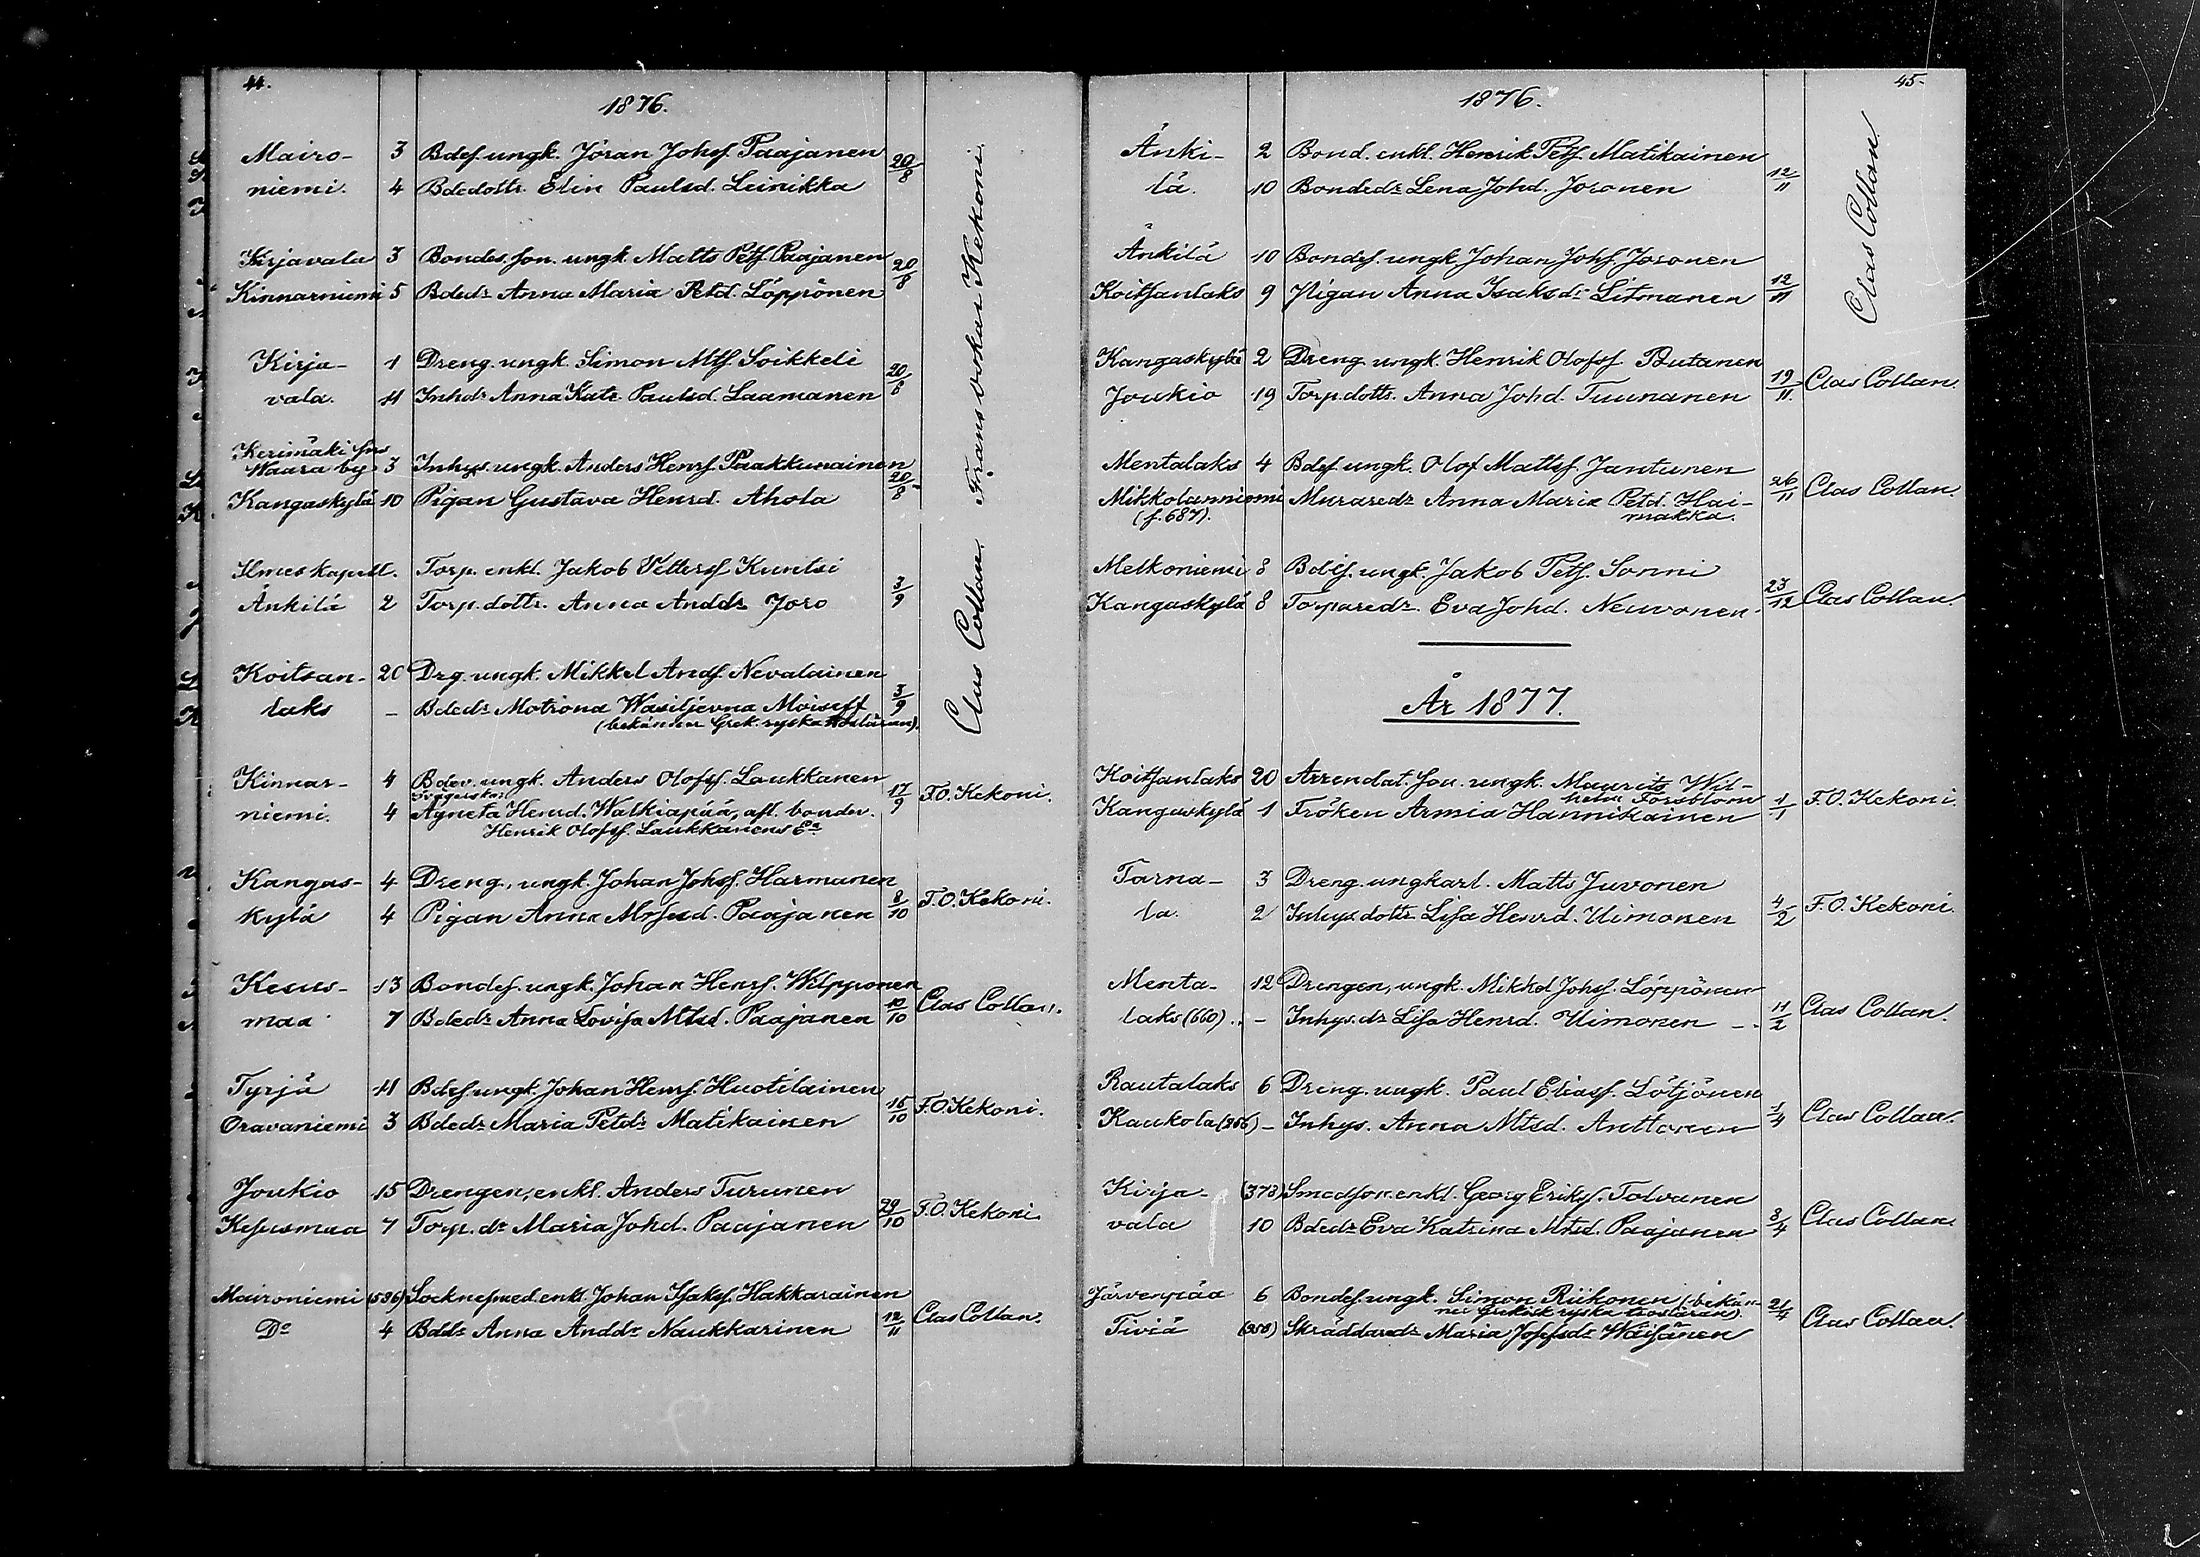 44.
1876.
Mairo- 3 Bdes. ungk. Jöran Johsf. Paajanen 20/8
niemi. 4 Bdedottr. Elin Paulsd. Leinikka
Kirjavala 3 Bondes. son. ungk. Matts Petf. Paajanen 20/8
Kinnarniemi 5 Bdedr Anna Maria Petd. Löppönen
Frans Oskar Kekoni.
Kirja- 1 Dreng. ungk. Simon Mtsf. Soikkeli 20/8
vala. 11 Inhdr Anna Katr. Paulsd. Laamanen
Kerimäki sns
Waara by 3 Inhys. ungk. Anders Henrf. Paakkunainen 20/8
Kangaskylä 10 Pigan Gustava Henrd. Ahola
Ilmes kapell. Torp. enkl. Jakob Pettersf. Kuntsi 3/9
Änkilä 2 Torp. dottr. Anna Anddr Joro
Clas Collan.
Koitsan- 20 Drg. ungk. Mikkel Andsf. Nevalainen
laks - Bdedr Motrona Wasiljevna Moiseff 3/9
(bekänner Grek. ryska trosläran).
Kinnar- 4 Bdev. ungk. Anders Olofsf. Laukkanen 17/9 F.O. Kekoni.
Svägerskan
niemi. 4 Agneta Henrd. Walkiapää, afl. bonden.
Henrik Olofsf. Laukkanens Ea
Kangas- 4 Dreng, ungk. Johan Johsf. Harmanen 8/10 F.O. Kekoni.
kylä 4 Pigan Anna Mosesd. Paajanen
Kesus- 13 Bondes. ungk. Johan Henrf. Wilpponen 10/10 Clas Collan.
maa 7 Bdedr Anna Lovisa Mtsd. Paajanen
Tyrjä 11 Bdes. ungk. Johan Henrf. Huotilainen 15/10 F.O. Kekoni.
Oravaniemi 3 Bdedr Maria Petdr Matikainen
Joukio 15 Drengen, enkl. Anders Turunen 29/10 F.O. Kekoni.
Kesusmaa 7 Torp. dr Maria Johd. Paajanen
Maironiemi (596) Socknesmed. enkl. Johan Isaksf. Hakkarainen 12/11 Clas Collan.
Do 4 Bddr Anna Anddr Naukkarinen
45.
1876.
Änki- 2 Bond. enkl. Henrik Petf. Matikainen 12/11
lä. 10 Bondedr Lena Johd. Joronen
Clas Collan.
Änkilä 10 Bondes. ungk. Johan Johsf. Joronen 12/11
Koitsanlaks 9 Pigan Anna Isaksdr Litmanen
Kangaskylä 2 Dreng. ungk. Henrik Olofsf. Putanen 19/11 Clas Collan.
Joukio 19 Torp. dottr. Anna Johd. Tuunanen
Mentalaks 4 Bdes. ungk. Olof Mattsf. Jantunen 26/11 Clas Collan.
Mikkolanniemi Muraredr Anna Maria Petd. Hai-
(f. 687). makka.
Melkoniemi 8 Bdes. ungk. Jakob Petf. Sorni 23/12 Clas Collan.
Kangaskylä 8 Torparedr. Eva Johd. Neuvonen.
År 1877.
Koitsanlaks 20 Arrendat. son. ungk. Maurits Wil-
helm Forsblom 1/1 F.O. Kekoni.
Kangaskylä 1 Fröken Armia Hannikainen
Tarna- 3 Dreng. ungkarl. Matts Juvonen 4/2 F.O. Kekoni.
la. 2 Inhys. dottr. Lisa Henrd. Uimonen
Menta- 12 Drengen, ungk. Mikkel Johsf. Löppönen 11/2 Clas Collan.
laks (660). - Inhys. dr Lisa Henrd. Uimonen -
Rautalaks 6 Dreng. ungk. Paul Eliasf. Lötjönen 1/4 Clas Collan.
Kaukola (266) - Inhys. Anna Mtsd. Anttonen
Kirja- (373) Smedson. enkl. Georg Eriksf. Tolvanen 8/4 Clas Collan.
vala 10 Bdedr Eva Katrina Mtsd. Paajanen
Järvenpää 6 Bondes. ungk. Simon Riikonen (bekän-
ner Grekisk ryska trosläran). 21/4 Clas Collan.
Tiviä (258) Skräddaredr Maria Josefsdr Wäisänen